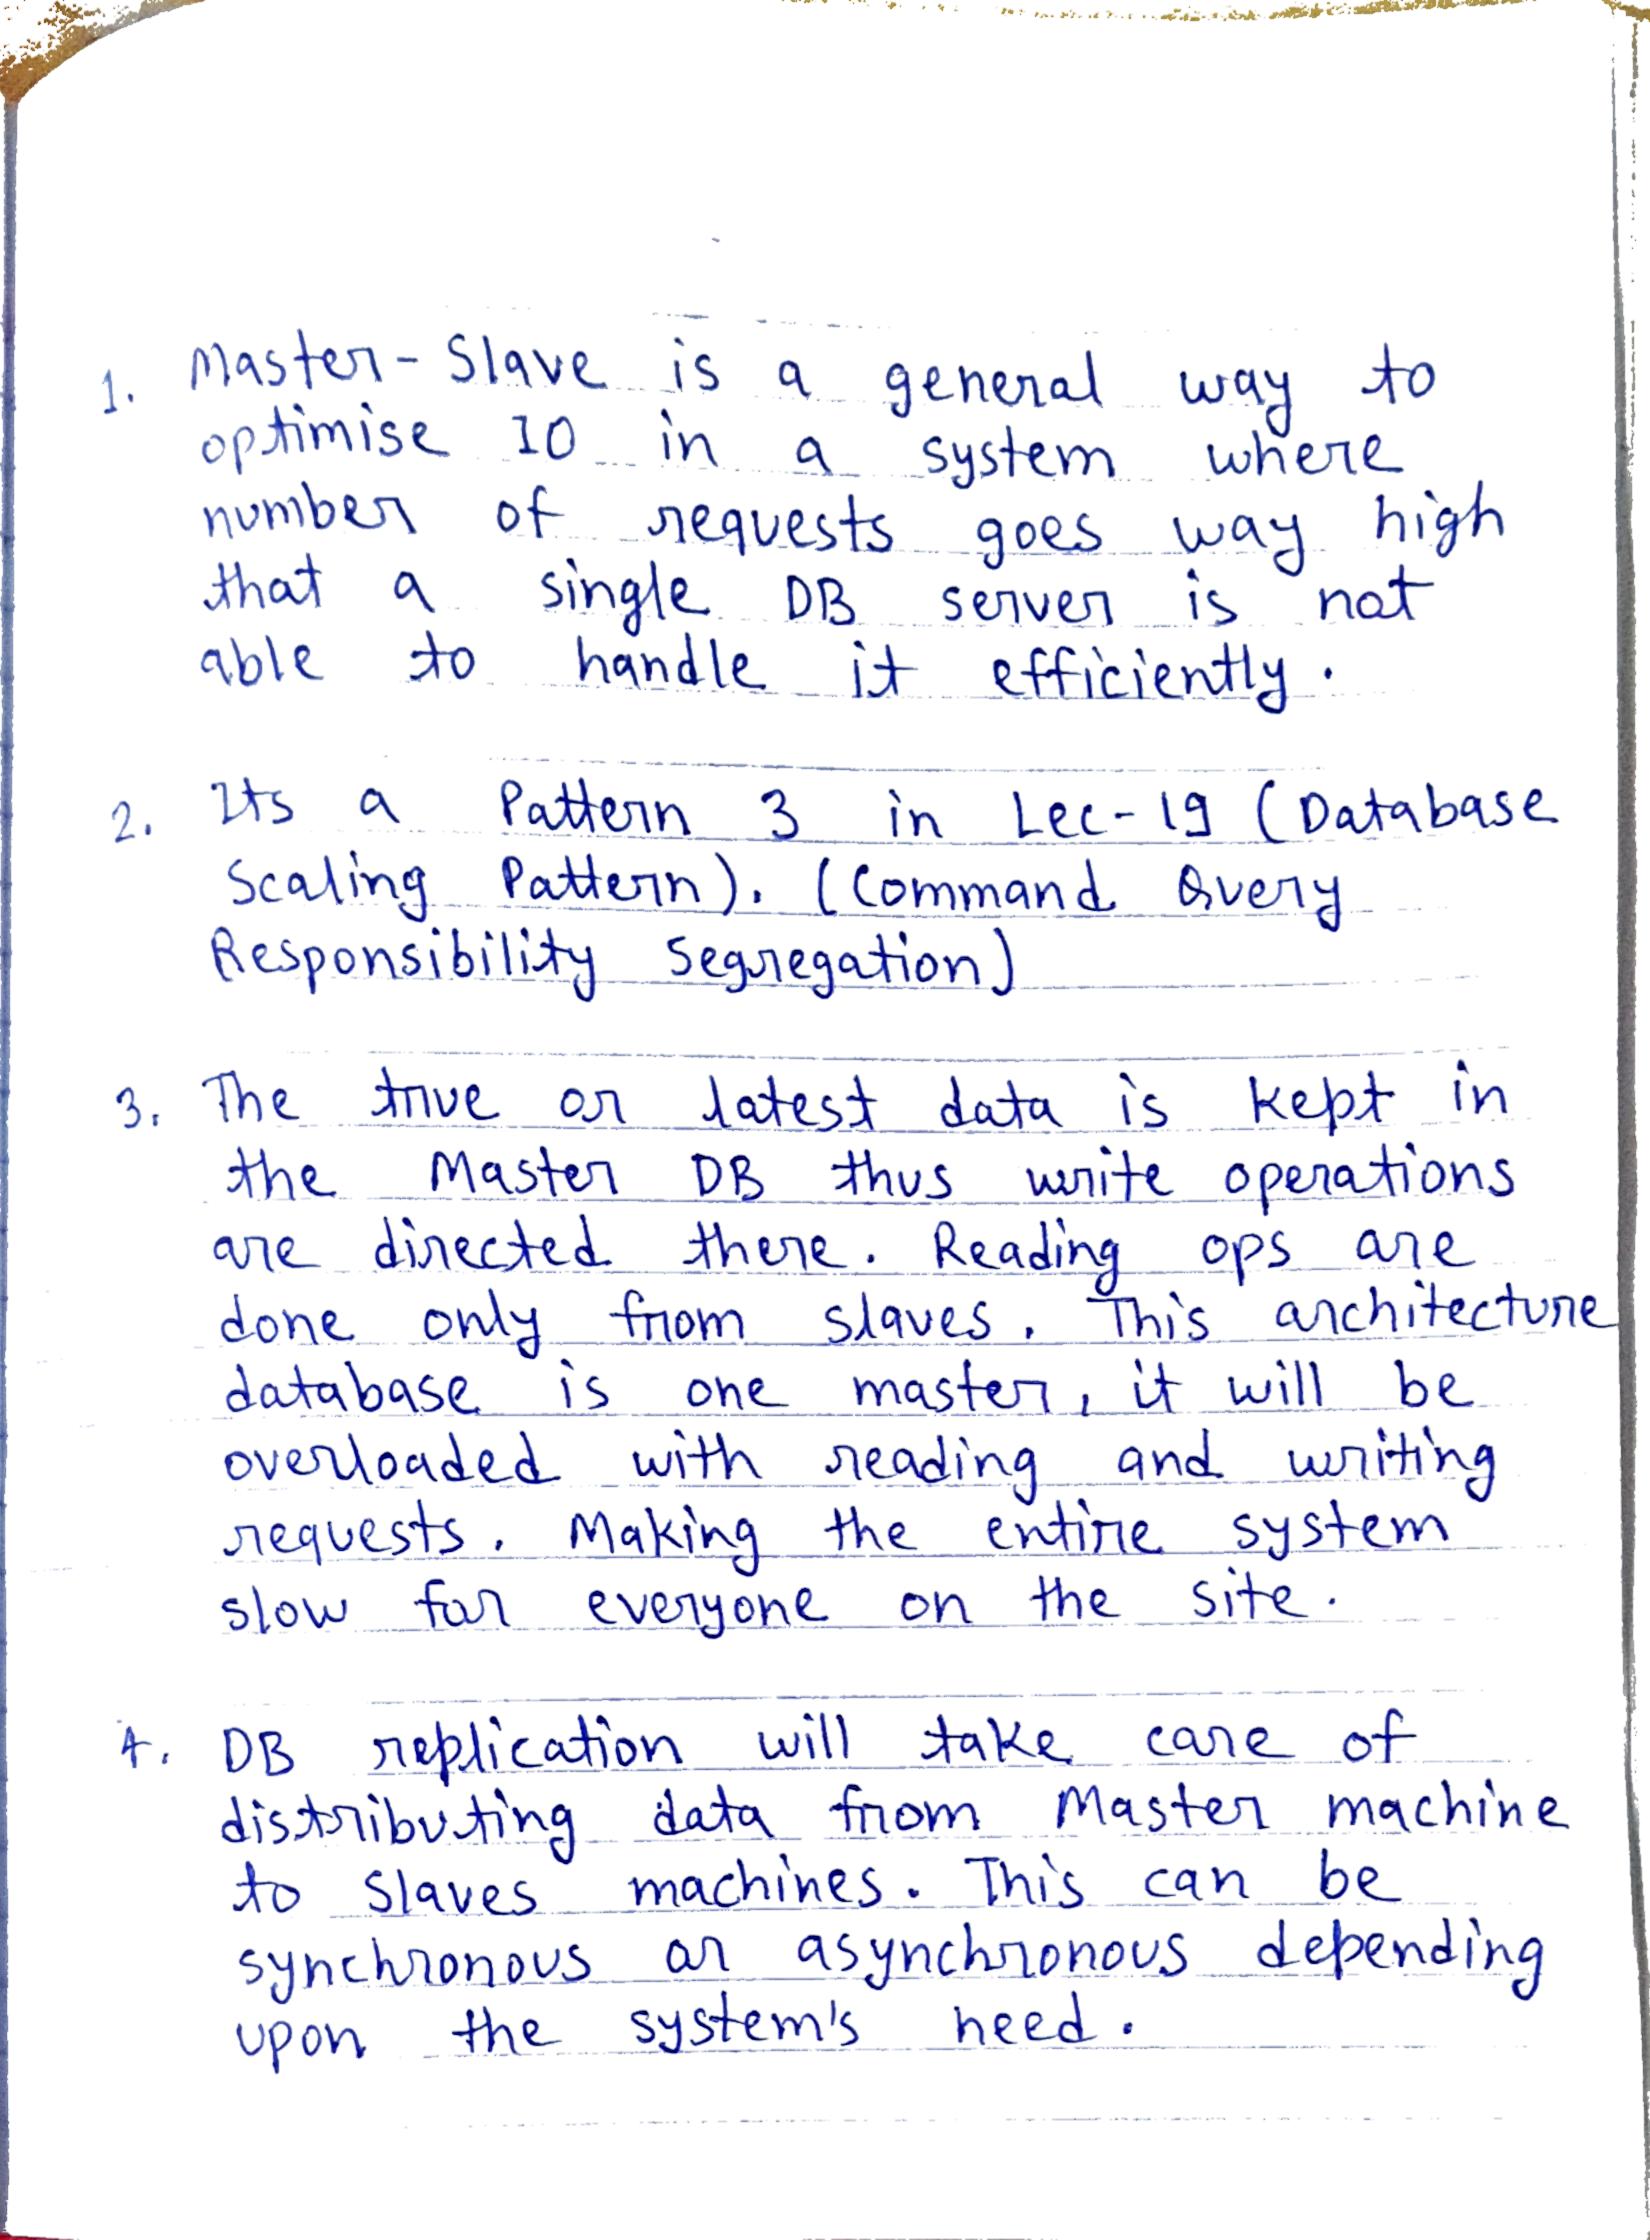 1. Master-Slave is a general way to
optimise IO in a system where
number of requests goes way high
that a single DB server is not
able to handle it efficiently.
2. Its a Pattern 3 in Lec-19 (Database
Scaling Pattern). (Command Query
Responsibility Segregation)
3. The true or latest data is kept in
the Master DB thus write operations
are directed there. Reading ops are
done only from slaves. This architecture
database is one master, it will be
overloaded with reading and writing
requests. Making the entire system
slow for everyone on the site.
4. DB replication will take care of
distributing data from Master machine
to Slaves machines. This can be
synchronous or asynchronous depending
upon the system's need.